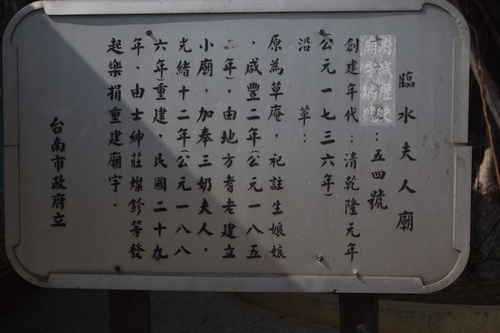 臨水夫人廟
府城歷史
廟字號碑：五四號
創建年代：清乾隆元年
(公元一七三六年)
沿革：
原為草庵，祀註生娘娘
，咸豐二年(公元一八五
二年)，由地方耆老建立
小廟，加奉三奶夫人，
光緒十二年(公元一八八
六年)重建，民國二十九
年由士紳莊燦鉁等發
起樂捐重建廟宇．
台南市政府立